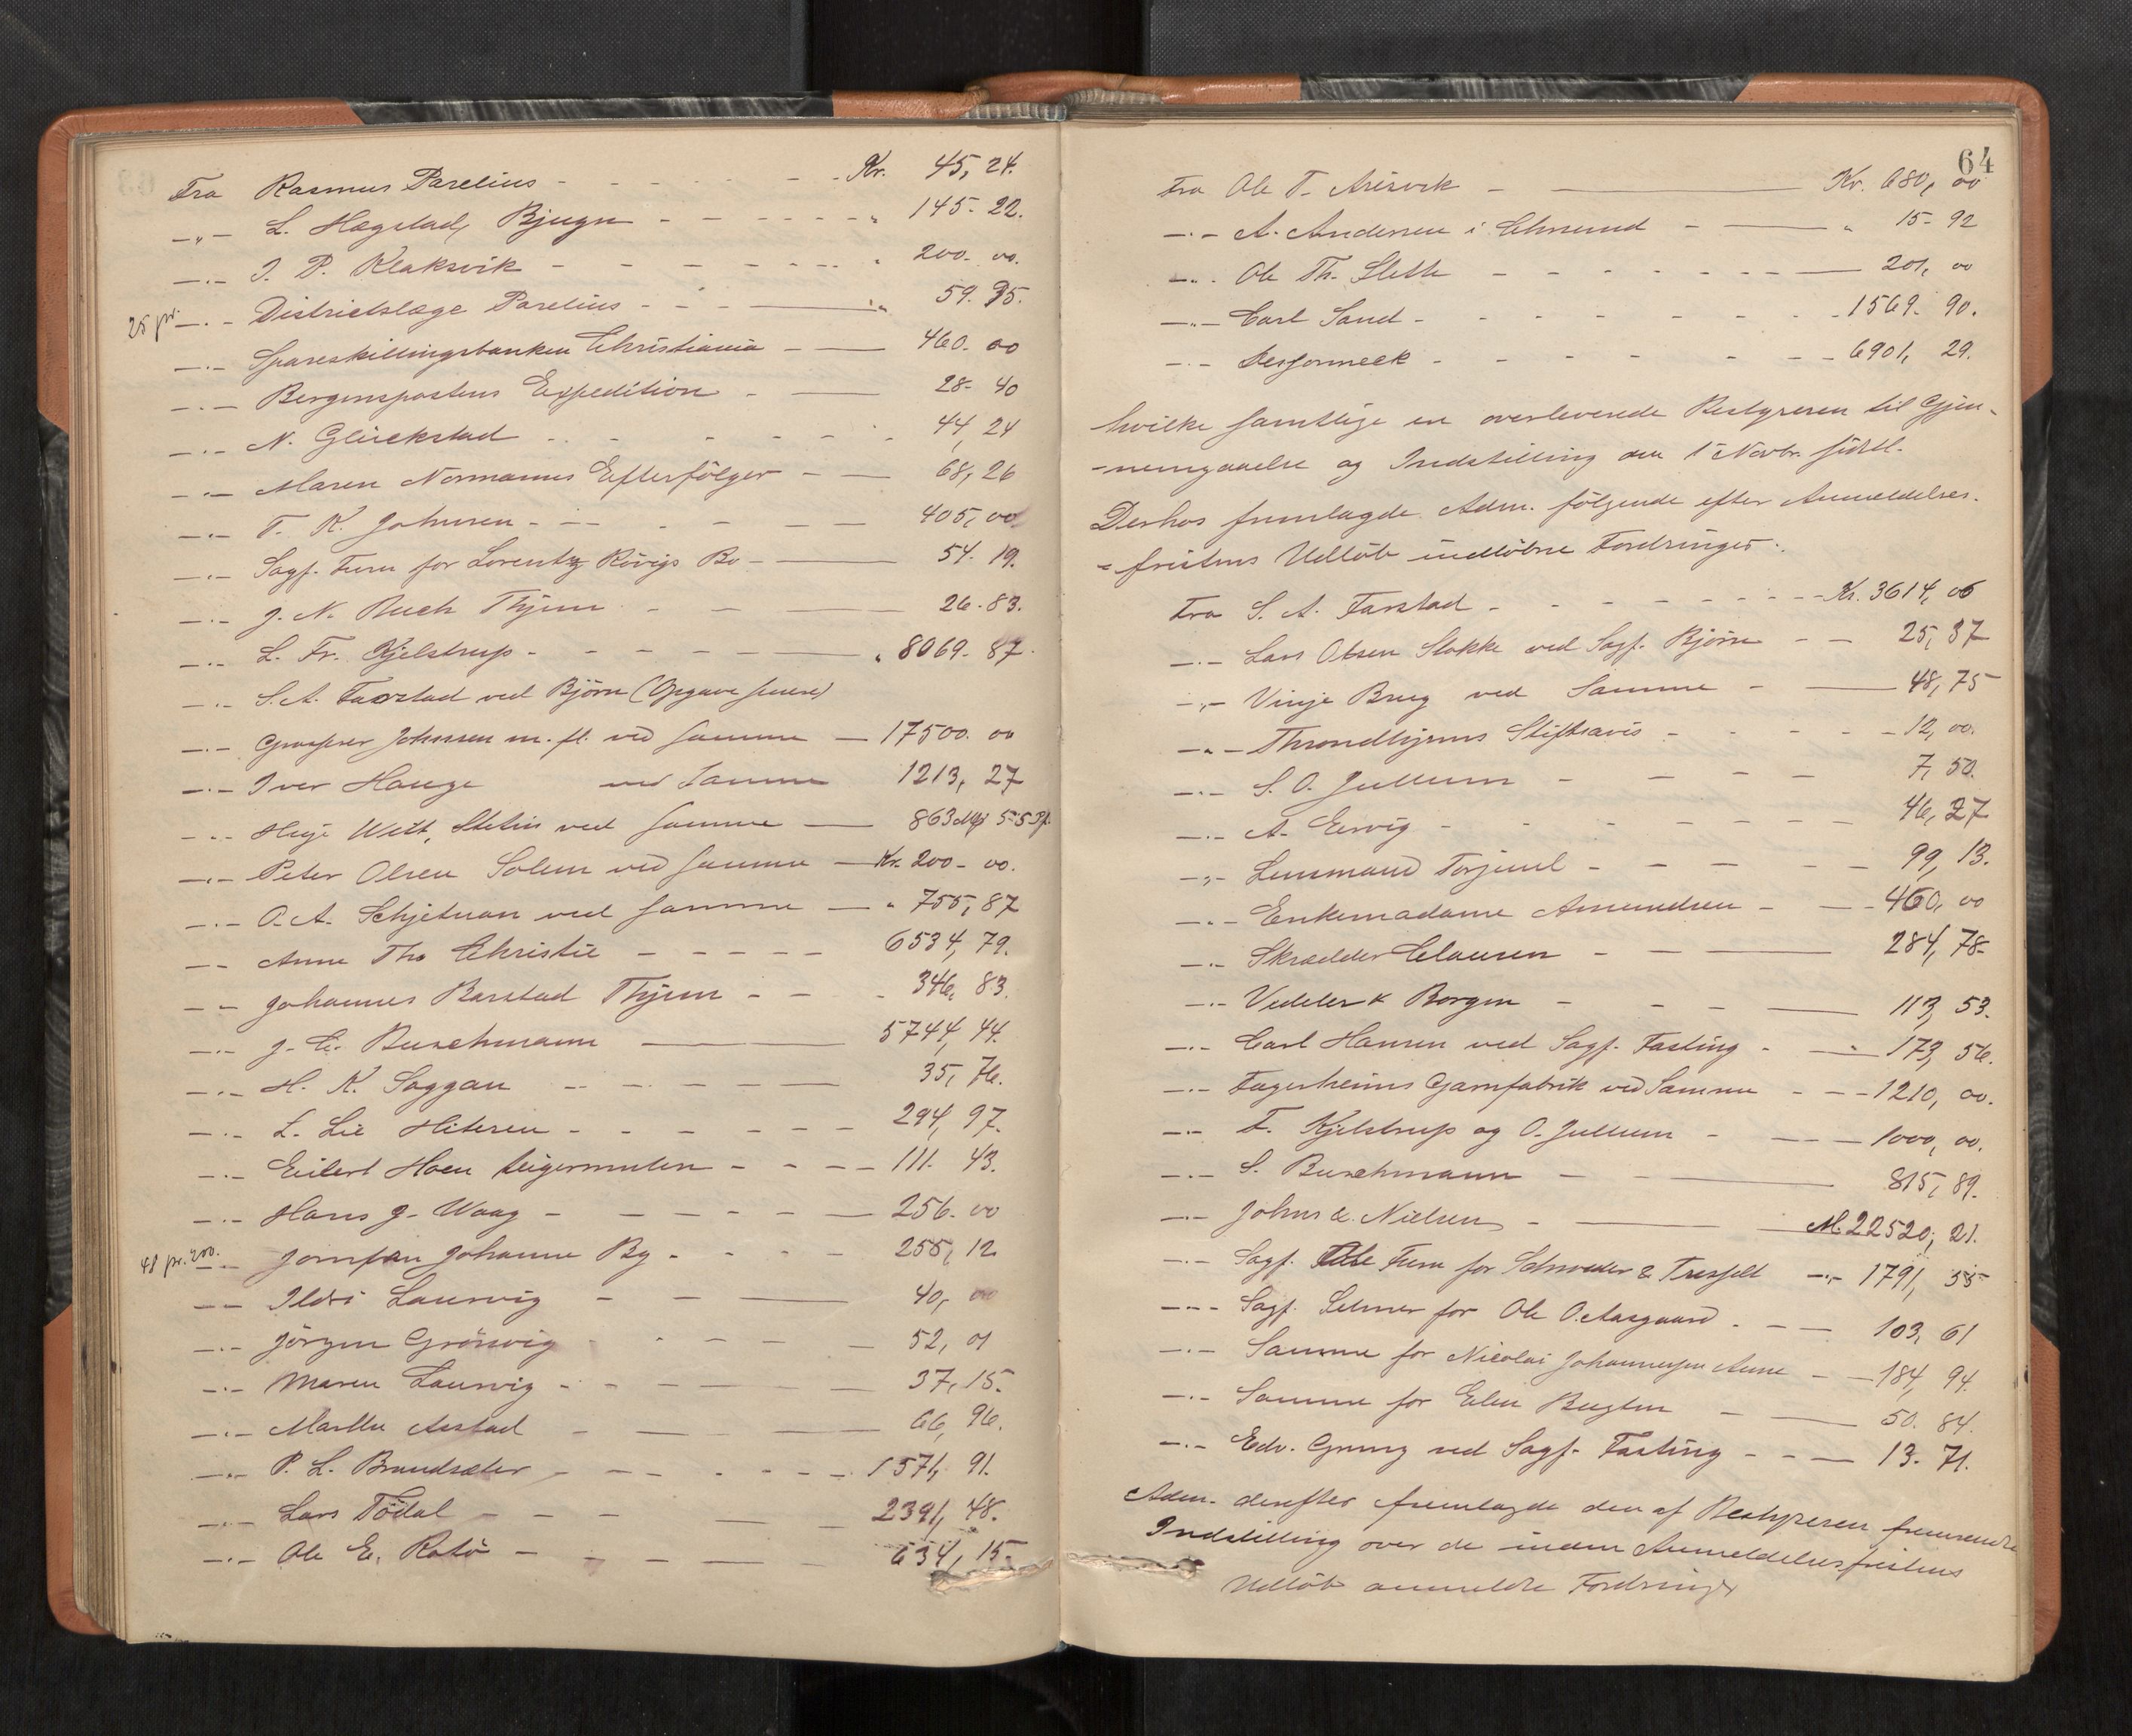 Fra Rasmus Parelius - - - - - Kr. 45,24.
-"- L. Hegstad, Bjugn - - - - - " 145. 22.
-"- J. P. Klaksvik - - - - - " 200. 00.
25 pr. -"- Districtslæge Parelius - - - " 59. 35.
-"- Spareskillingsbanken Christiania - - 460. 00
-"- Bergenspostens Expedition - - 28. 40
-"- N. Glückstad - - - - - 44,24
-"- Maren Normanns Efterfölger - - 68,26
-"- T. K. Johnsen - - - - - 405,00.
-"- Sagf. Furu for Lorentz Rövigs Bo - - 54. 19.
-"- J. N. Buch Thjem - - - 26. 83.
-"- L. Fr. Kjelstrup - - - - - " 8069. 87.
-"- S. A. Farstad ved Björn (Opgave senere)
-"- Grosserer Johnsen m. fl. ved samme - 17500. 00
-"- Iver Hauge ved Samme 1213,27
-"- Witt, Stetin ved samme - 863 Mk 55 Pf.
-"- Peter Olsen Solem ved samme - Kr. 200 - 00.
-"- O. A. Schjetnan ved samme - " 755,87
-"- Anne Tho Christie - - - - - 6534,79.
-"- Johannes Barstad Thjem - - - 346,83.
-"- J. C. Buschmann - 5744,44.
-"- H. K. Saggau - - - - - 35,76.
-"- L. Lie Hiteren - - - - - 294,97.
-"- Eilert Hoen Leigermulen - - - - 111. 43.
-"- Hans J. Waag - - - - - 256. 00
48 pr. 200. -"- Jomfru Johanne By - - - - 255,12
-"- Ildri Laurvig - - - 40,00
-"- Jörgen Grönvig - - - - 52,01
-"- Maren Laurvig - - - - 37,15.
-"- Marthe Aestad - - - - 66,96.
-"- P. L. Brandsæter - - - - - 1571,91.
-"- Lars Tödal - - - - - 2391,48.
-"- Ole E. Rotö - - - - - 634,15.
64
Fra Ole T. Arisvik - Kr. 680,00
-"- A. Andersen i Christiansund - " 15 - 92
-"- Ole Th. Slette - - - - - 201,00
-"- Carl Sand - - - - - - 1569. 90.
-"- - - - - - - 6901,29.
hvilke samtlige er overleverede Bestyreren til Gjen-
-nemgaaelse og Indstilling den 1ste Novbr. sidstl.
Derhos fremlagde Adm. følgende efter Anmeldelses-
=fristens Udløb indløbne Fordringer:
Fra S. A. Farstad - - - - - - Kr. 3614,06
-"- Lars Olsen Stokke ved Sagf. Björn - - 25,37
-"- Vinje Brug ved Samme - - 48,75
-"- Throndhjems Stiftsavis - - - - 12,00.
-"- S. O. Jullum - - - - 7,50.
-"- A. Ervig - - - - - 46,27
-"- Lensmand Torjuul - - - - - 99,13.
-"- Enkemadame Amundsen - - - 460,00
-"- Skrædder Clausen - - 284,78-
-"- Vedeler & Borgen - - - - 113,53.
-"- Carl Hansen ved Sagf. Fasting - - 173,56.
-"- Fagerheims Garnfabrik ved Samme - - 1210,00.
-"- F. Kjelstrup og O. Jullum - - 1000,00.
-"- S. Buschmann - - 815,89.
-"- Johns & Nielsen - - M. 22520,21.
-"- Sagf. Furu for Schrøeder & - 1791,55
-"- Sagf. Selmer for Ole O. Aasgaard - - 103,61
-"- Samme for Nicolai Johannesen Aune - - 184,94.
-"- Samme for Elen Bugten - - 50. 84.
-"- Edv. Grung ved Sagf. Fasting - - - 13. 71.
Adm. derefter fremlagde den af Bestyreren fremsendte
Indstilling over de inden Anmeldelsesfristens
Udløb anmeldte Fordringer